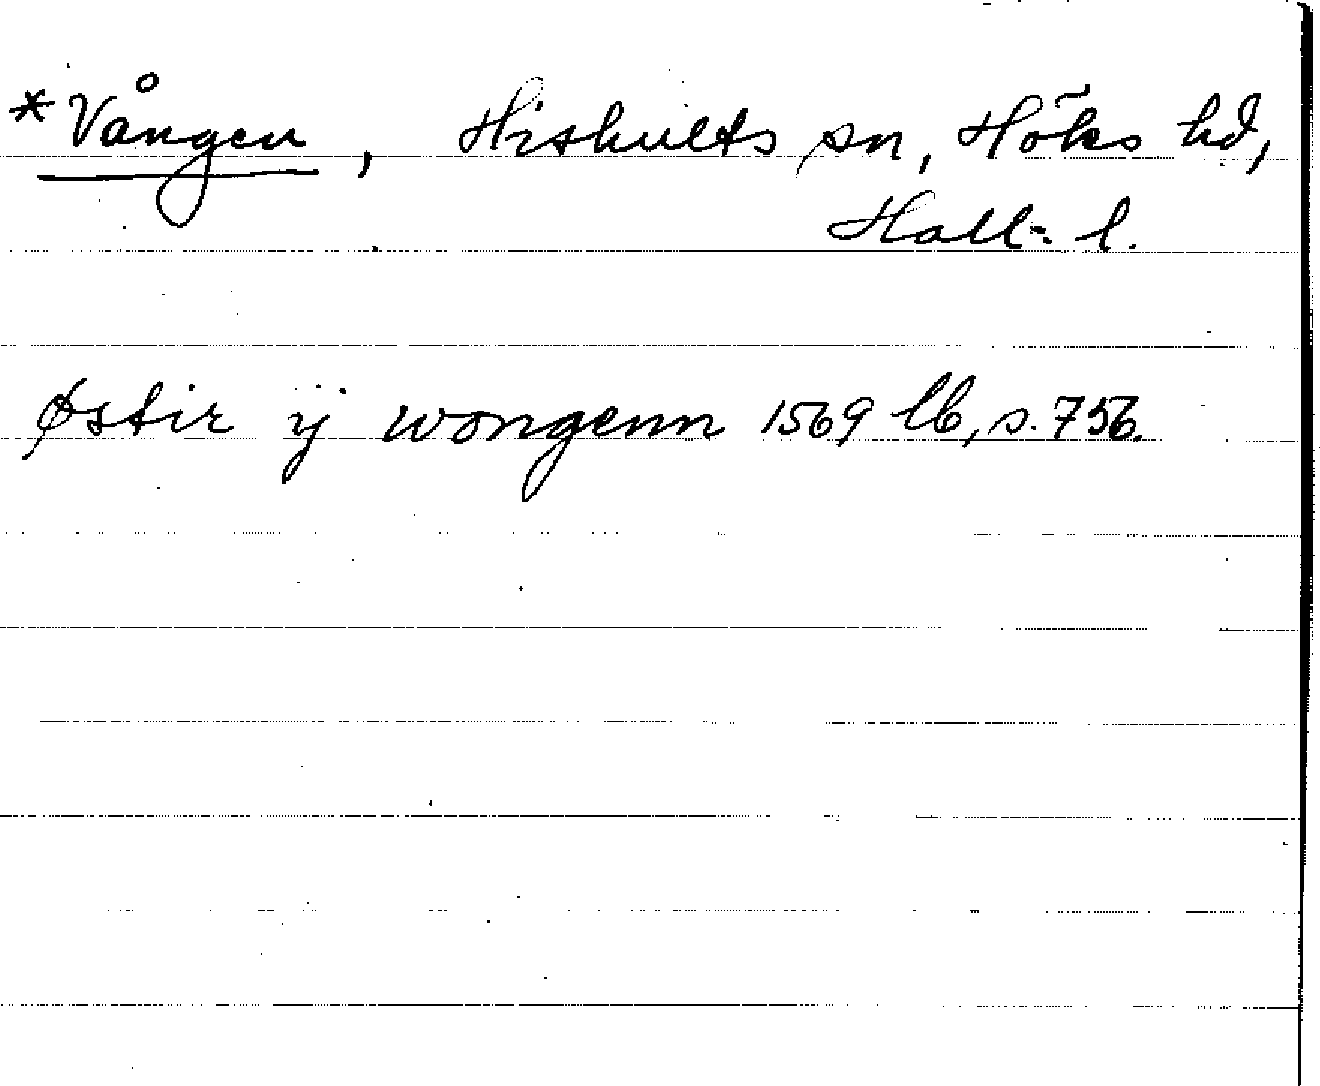 *Vången, Hishults sn, Höks hd,
Hall:s l.
Østir ij wongenn 1569 lb, s. 756.